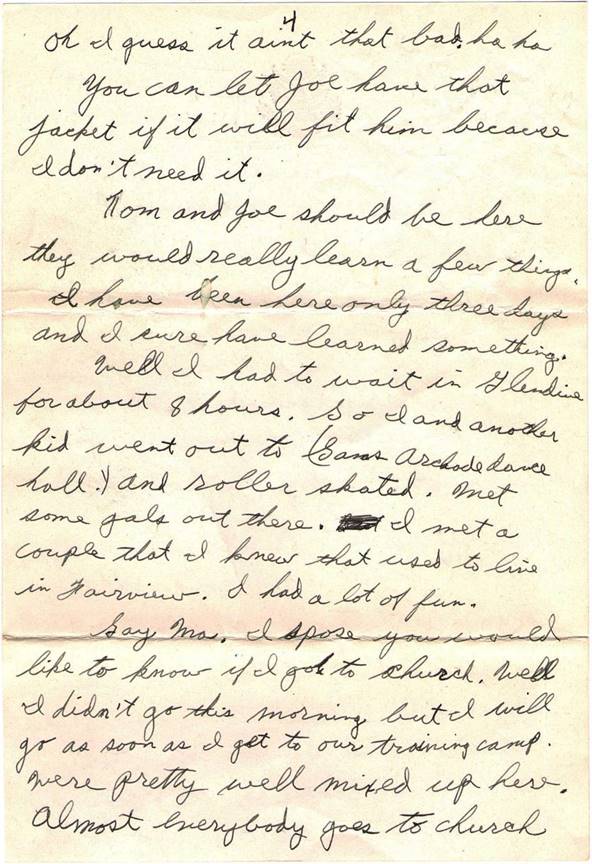 4
Oh I guess it aint that bad. ha ha
You can let Joe have that
jacket if it will fit him because
I don't need it.
Mom and Joe should be here
they would really learn a few things.
I have been here only three days
and I sure have learned something.
Well I had to wait in Glendive
for about 8 hours. So I and another
kid went out to ( dance
hall.) and roller skated. Met
some gals out there. I met a
couple that I knew that used to live
in Fairview. I had a lot of fun.
Say Ma. I spose you would
like to know if I got to church. Well
I didn't go this morning but I will
go as soon as I get to our training camp.
Were pretty well mixed up here.
Almost everybody goes to church